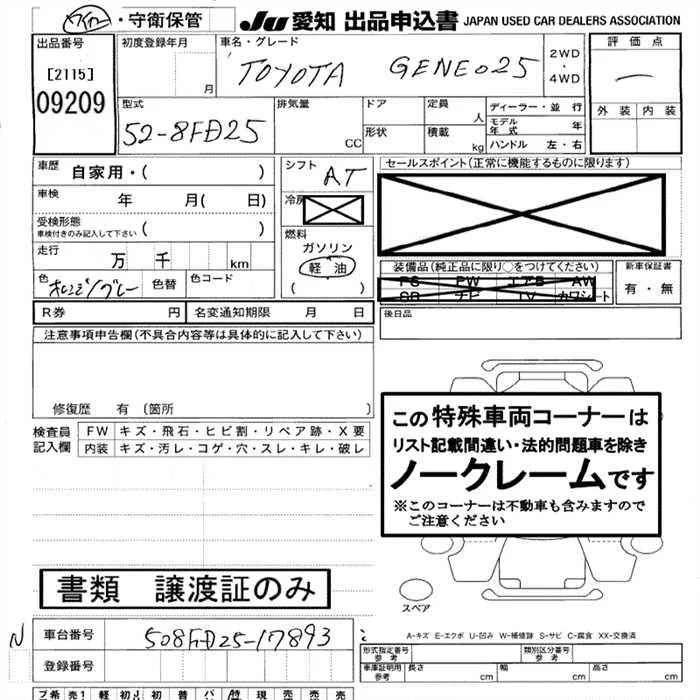 ・守衛保管
JU 愛知 出品申込書 JAPAN USED CAR DEALERS ASSOCIATION
出品番号
[2115]
09209
初度登録年月
月
車名・グレード
TOYOTA GENEO25
2WD
・
4WD
評価点
外装 内装
型式
52-8FD25
排気量
CC
ドア
形状
定員
人
積載
kg
ディーラー・並行
モデル年式 年
ハンドル 左・右
車歴 自家用・( )
車検 年 月( 日)
受検形態
車検付きのみ記入して下さい ( )
走行 万 千 km
色 オレンジ/グレー 色替 色コード
シフト AT
冷房
燃料
ガソリン
軽油
( )
セールスポイント(正常に機能するものに限ります)
装備品(純正品に限り○をつけてください)
PS PW エアB AW
SR ナビ TV カワシート
新車保証書
有・無
後日品
R券 円 名変通知期限 月 日
注意事項申告欄(不具合内容等は具体的に記入して下さい)
修復歴 有 〔箇所 〕
検査員記入欄
FW キズ・飛石・ヒビ割・リペア跡・X要
内装 キズ・汚レ・コゲ・穴・スレ・キレ・破レ
この特殊車両コーナーは
リスト記載間違い・法的問題車を除き
ノークレームです
※このコーナーは不動車も含みますので
ご注意ください
書類 譲渡証のみ
スペア
A-キズ E-エクボ U-凹み W-補修跡 S-サビ C-腐食 XX-交換済
N 車台番号 508FD25-17893
登録番号
形式指定番号
参考
類別区分番号
参考
車庫証明用
参考
長さ cm 幅 cm 高さ cm